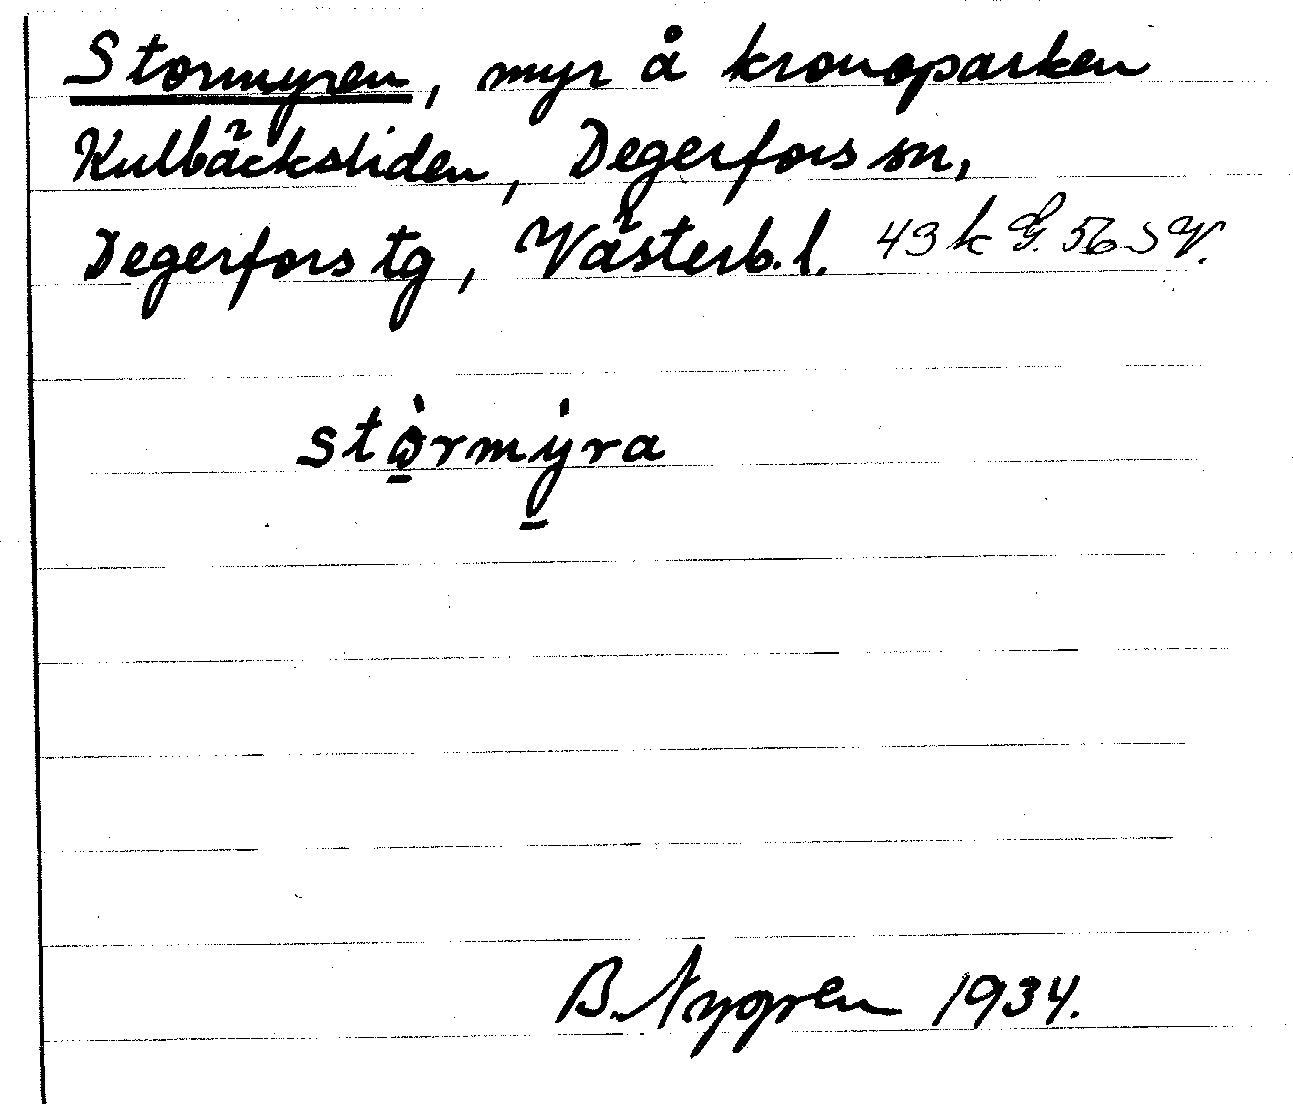 Stormyren, myr å kronoparken
Kulbäcksliden, Degerfors sn,
Degerfors tg, Västerb. l. 43 k G. 56 SV.
stòrmỳra
B. Nygren 1934.